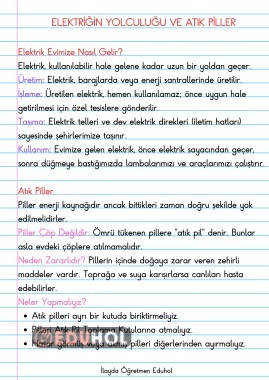 ELEKTRİĞİN YOLCULUĞU VE ATIK PİLLER
Elektrik Evimize Nasıl Gelir?
Elektrik, kullanılabilir hale gelene kadar uzun bir yoldan geçer:
Üretim: Elektrik, barajlarda veya enerji santrallerinde üretilir.
İşleme: Üretilen elektrik, hemen kullanılamaz; önce uygun hale
getirilmesi için özel tesislere gönderilir.
Taşıma: Elektrik telleri ve dev elektrik direkleri (iletim hatları)
sayesinde şehirlerimize taşınır.
Kullanım: Evimize gelen elektrik, önce elektrik sayacından geçer,
sonra düğmeye bastığımızda lambalarımızı ve araçlarımızı çalıştırır.
Atık Piller
Piller enerji kaynağıdır ancak bittikleri zaman doğru şekilde yok
edilmelidirler.
Piller Çöp Değildir: Ömrü tükenen pillere "atık pil" denir. Bunlar
asla evdeki çöplere atılmamalıdır.
Neden Zararlıdır? Pillerin içinde doğaya zarar veren zehirli
maddeler vardır. Toprağa ve suya karışırlarsa canlıları hasta
edebilirler.
Neler Yapmalıyız?
• Atık pilleri ayrı bir kutuda biriktirmeliyiz.
• Pilleri Atık Pil Toplama Kutularına atmalıyız.
• pilleri diğerlerinden ayırmalıyız.
EDUHOL
İlayda Öğretmen Eduhol